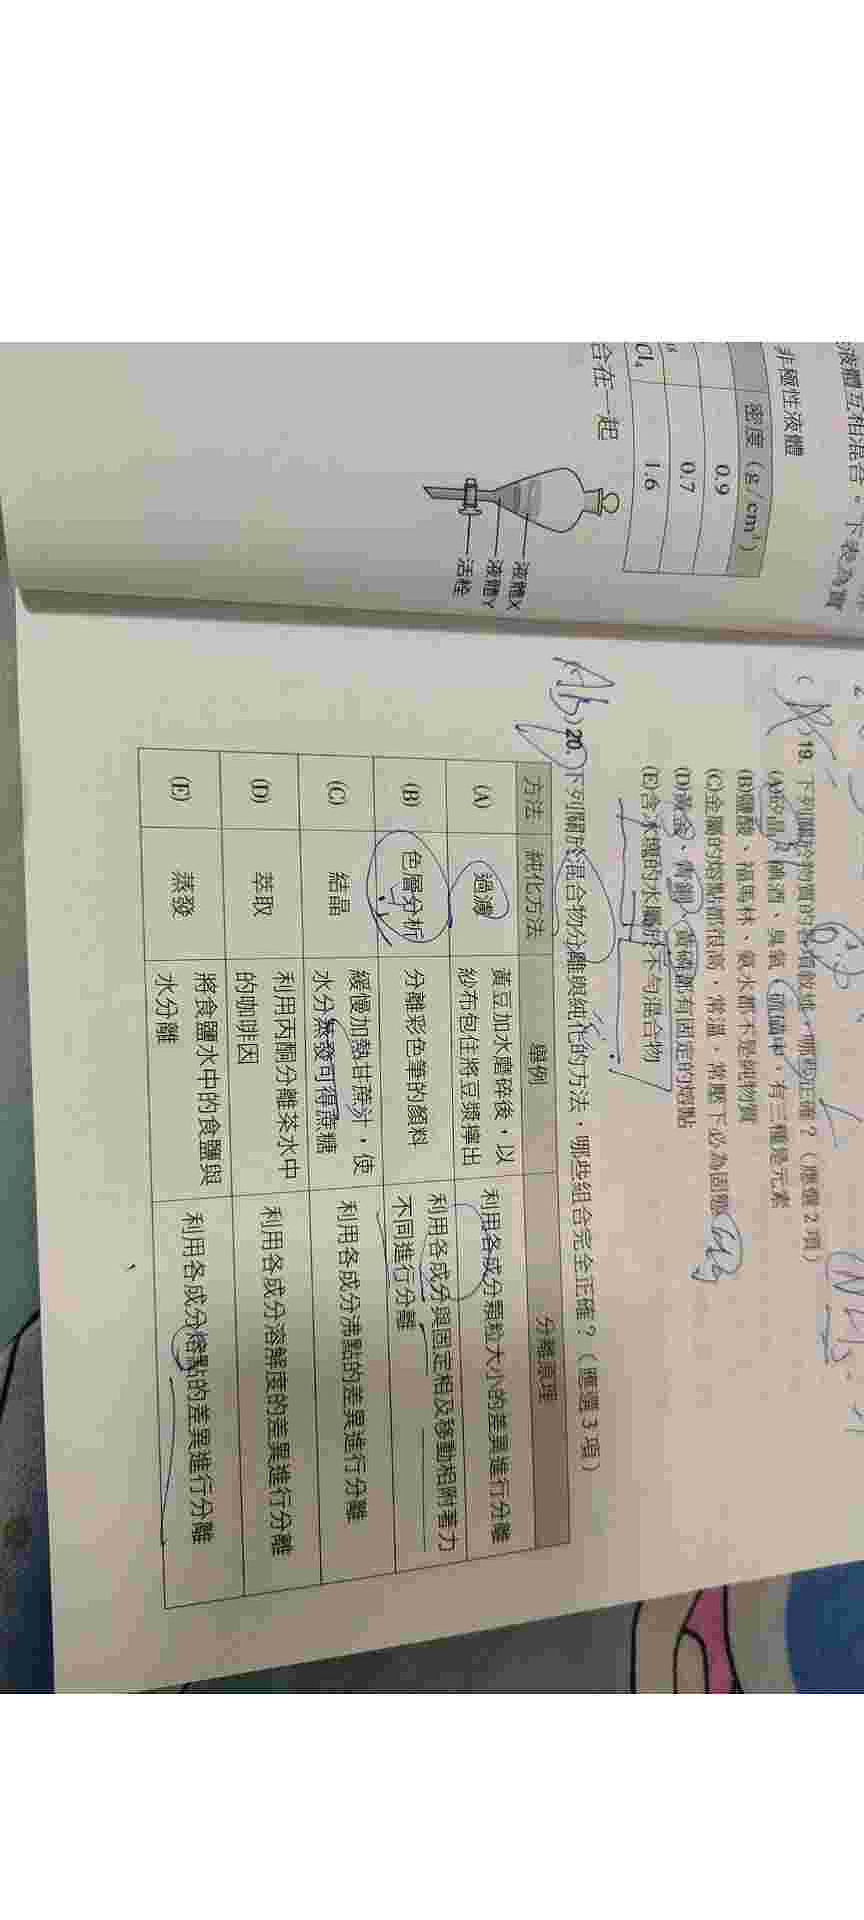 液體互相混合。下表為實
非極性液體
密度（g/cm³）
0.9
0.7
Cl₄ 1.6
合在一起
液體X
液體Y
活栓
19. 下列關於物質的各項敘述，哪些正確？（應選2項）
(A)矽晶、碘酒、臭氧、硫磺中，有三種是元素
(B)鹽酸、福馬林、氨水都不是純物質
(C)金屬的熔點都很高，常溫、常壓下必為固態
(D)黃金、青銅、黃磷都有固定的熔點
(E)含冰塊的水屬於不勻混合物
Ab
20. 下列關於混合物分離與純化的方法，哪些組合完全正確？（應選3項）
方法 純化方法 舉例 分離原理
(A) 過濾 黃豆加水磨碎後，以 利用各成分顆粒大小的差異進行分離
紗布包住將豆漿擰出
(B) 色層分析 分離彩色筆的顏料 利用各成分與固定相及移動相附著力
不同進行分離
(C) 結晶 緩慢加熱甘蔗汁，使 利用各成分沸點的差異進行分離
水分蒸發可得蔗糖
(D) 萃取 利用丙酮分離茶水中 利用各成分溶解度的差異進行分離
的咖啡因
(E) 蒸發 將食鹽水中的食鹽與 利用各成分熔點的差異進行分離
水分離